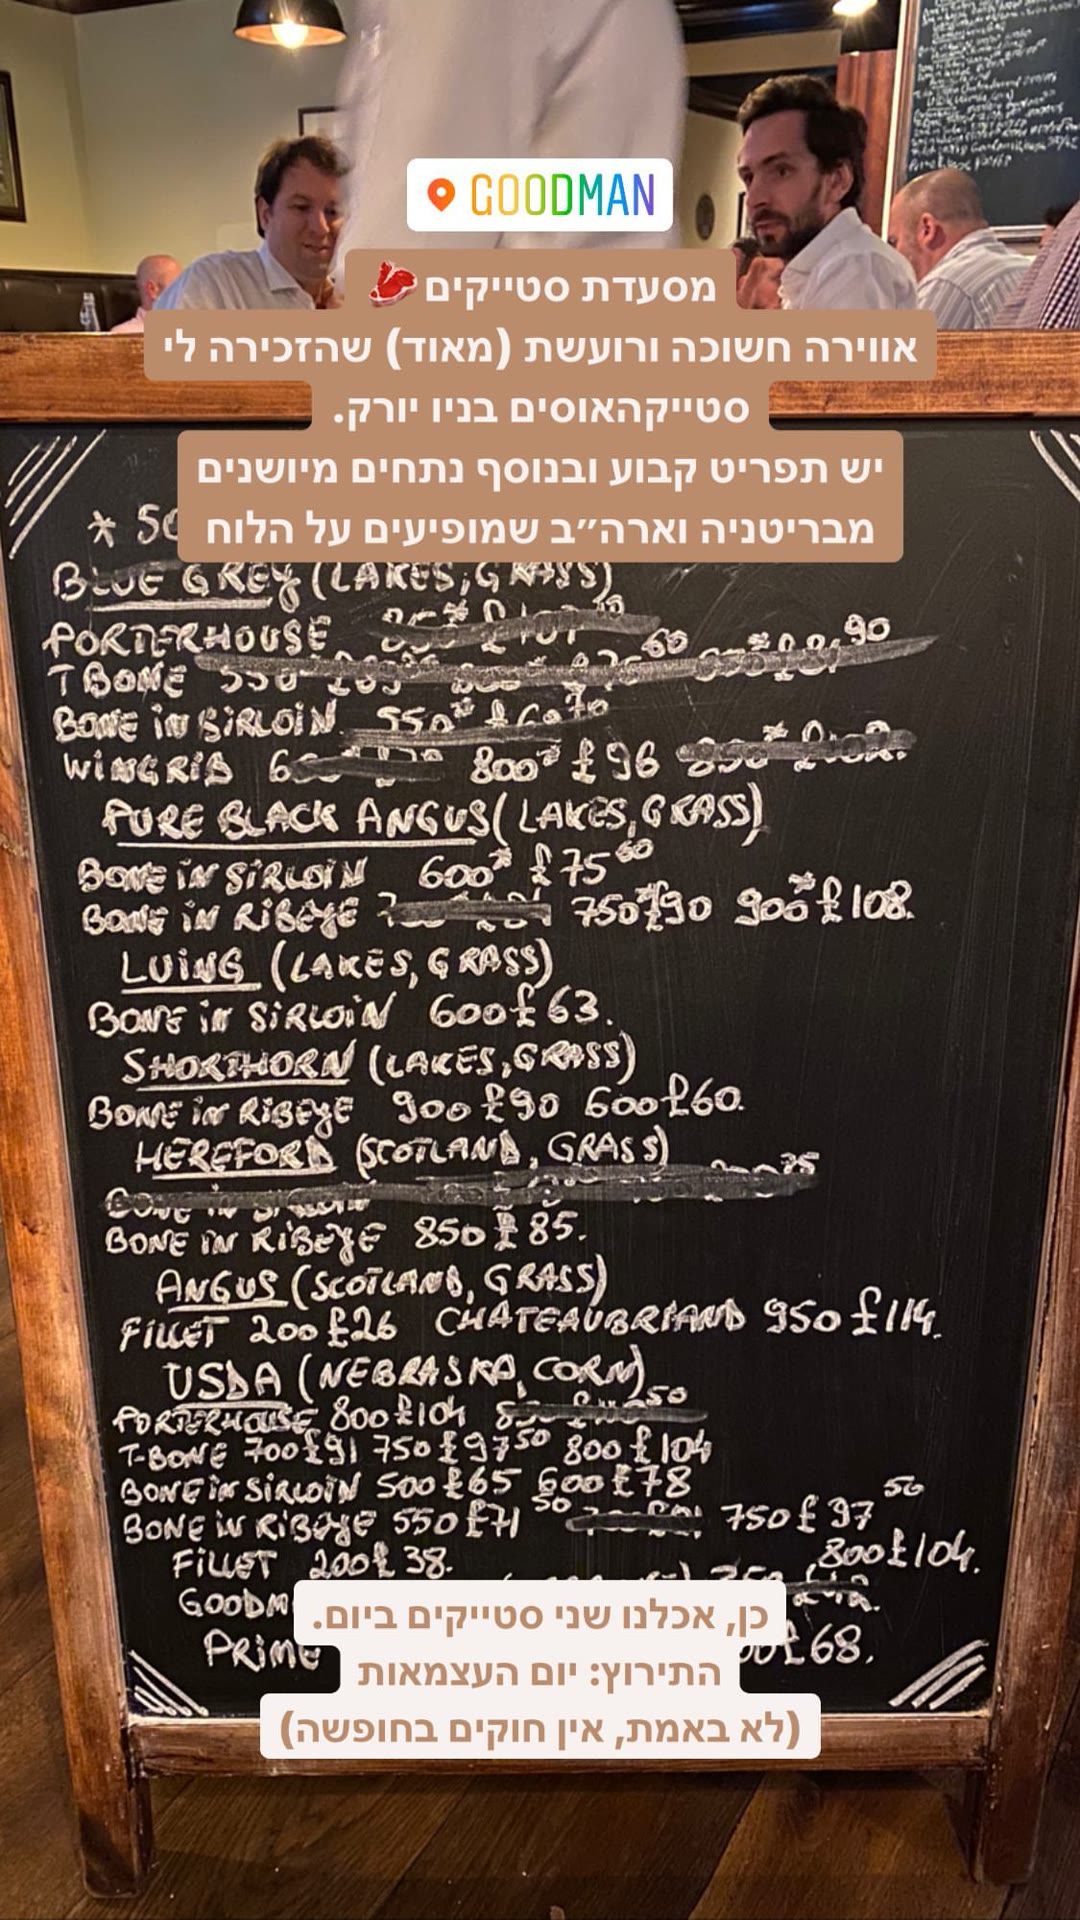 GOODMAN
מסעדת סטייקים
אווירה חשוכה ורועשת (מאוד) שהזכירה לי
סטייקהאוסים בניו יורק.
יש תפריט קבוע ובנוסף נתחים מיושנים
מבריטניה וארה״ב שמופיעים על הלוח
BLUE GREY (LAKES, GRASS)
PORTERHOUSE
T BONE 550
BONE IN SIRLOIN 550
WINGRIB 800 £96
PURE BLACK ANGUS (LAKES, GRASS)
BONE IN SIRLOIN 600 £75
BONE IN RIBEYE 750 £90 900 £108.
LUING (LAKES, GRASS)
BONE IN SIRLOIN 600 £63.
SHORTHORN (LAKES, GRASS)
BONE IN RIBEYE 900 £90 600 £60.
HEREFORD (SCOTLAND, GRASS)
BONE IN SIRLOIN
BONE IN RIBEYE 850 £85.
ANGUS (SCOTLAND, GRASS)
FILLET 200 £26 CHATEAUBRIAND 950 £114.
USDA (NEBRASKA, CORN)
PORTERHOUSE 800 £104
T-BONE 700 £91 750 £97 50 800 £104
BONE IN SIRLOIN 500 £65 600 £78
BONE IN RIBEYE 550 £71 50 750 £97 50
800 £104.
FILLET 200 £38.
PRIME £68.
כן, אכלנו שני סטייקים ביום.
התירוץ: יום העצמאות
(לא באמת, אין חוקים בחופשה)